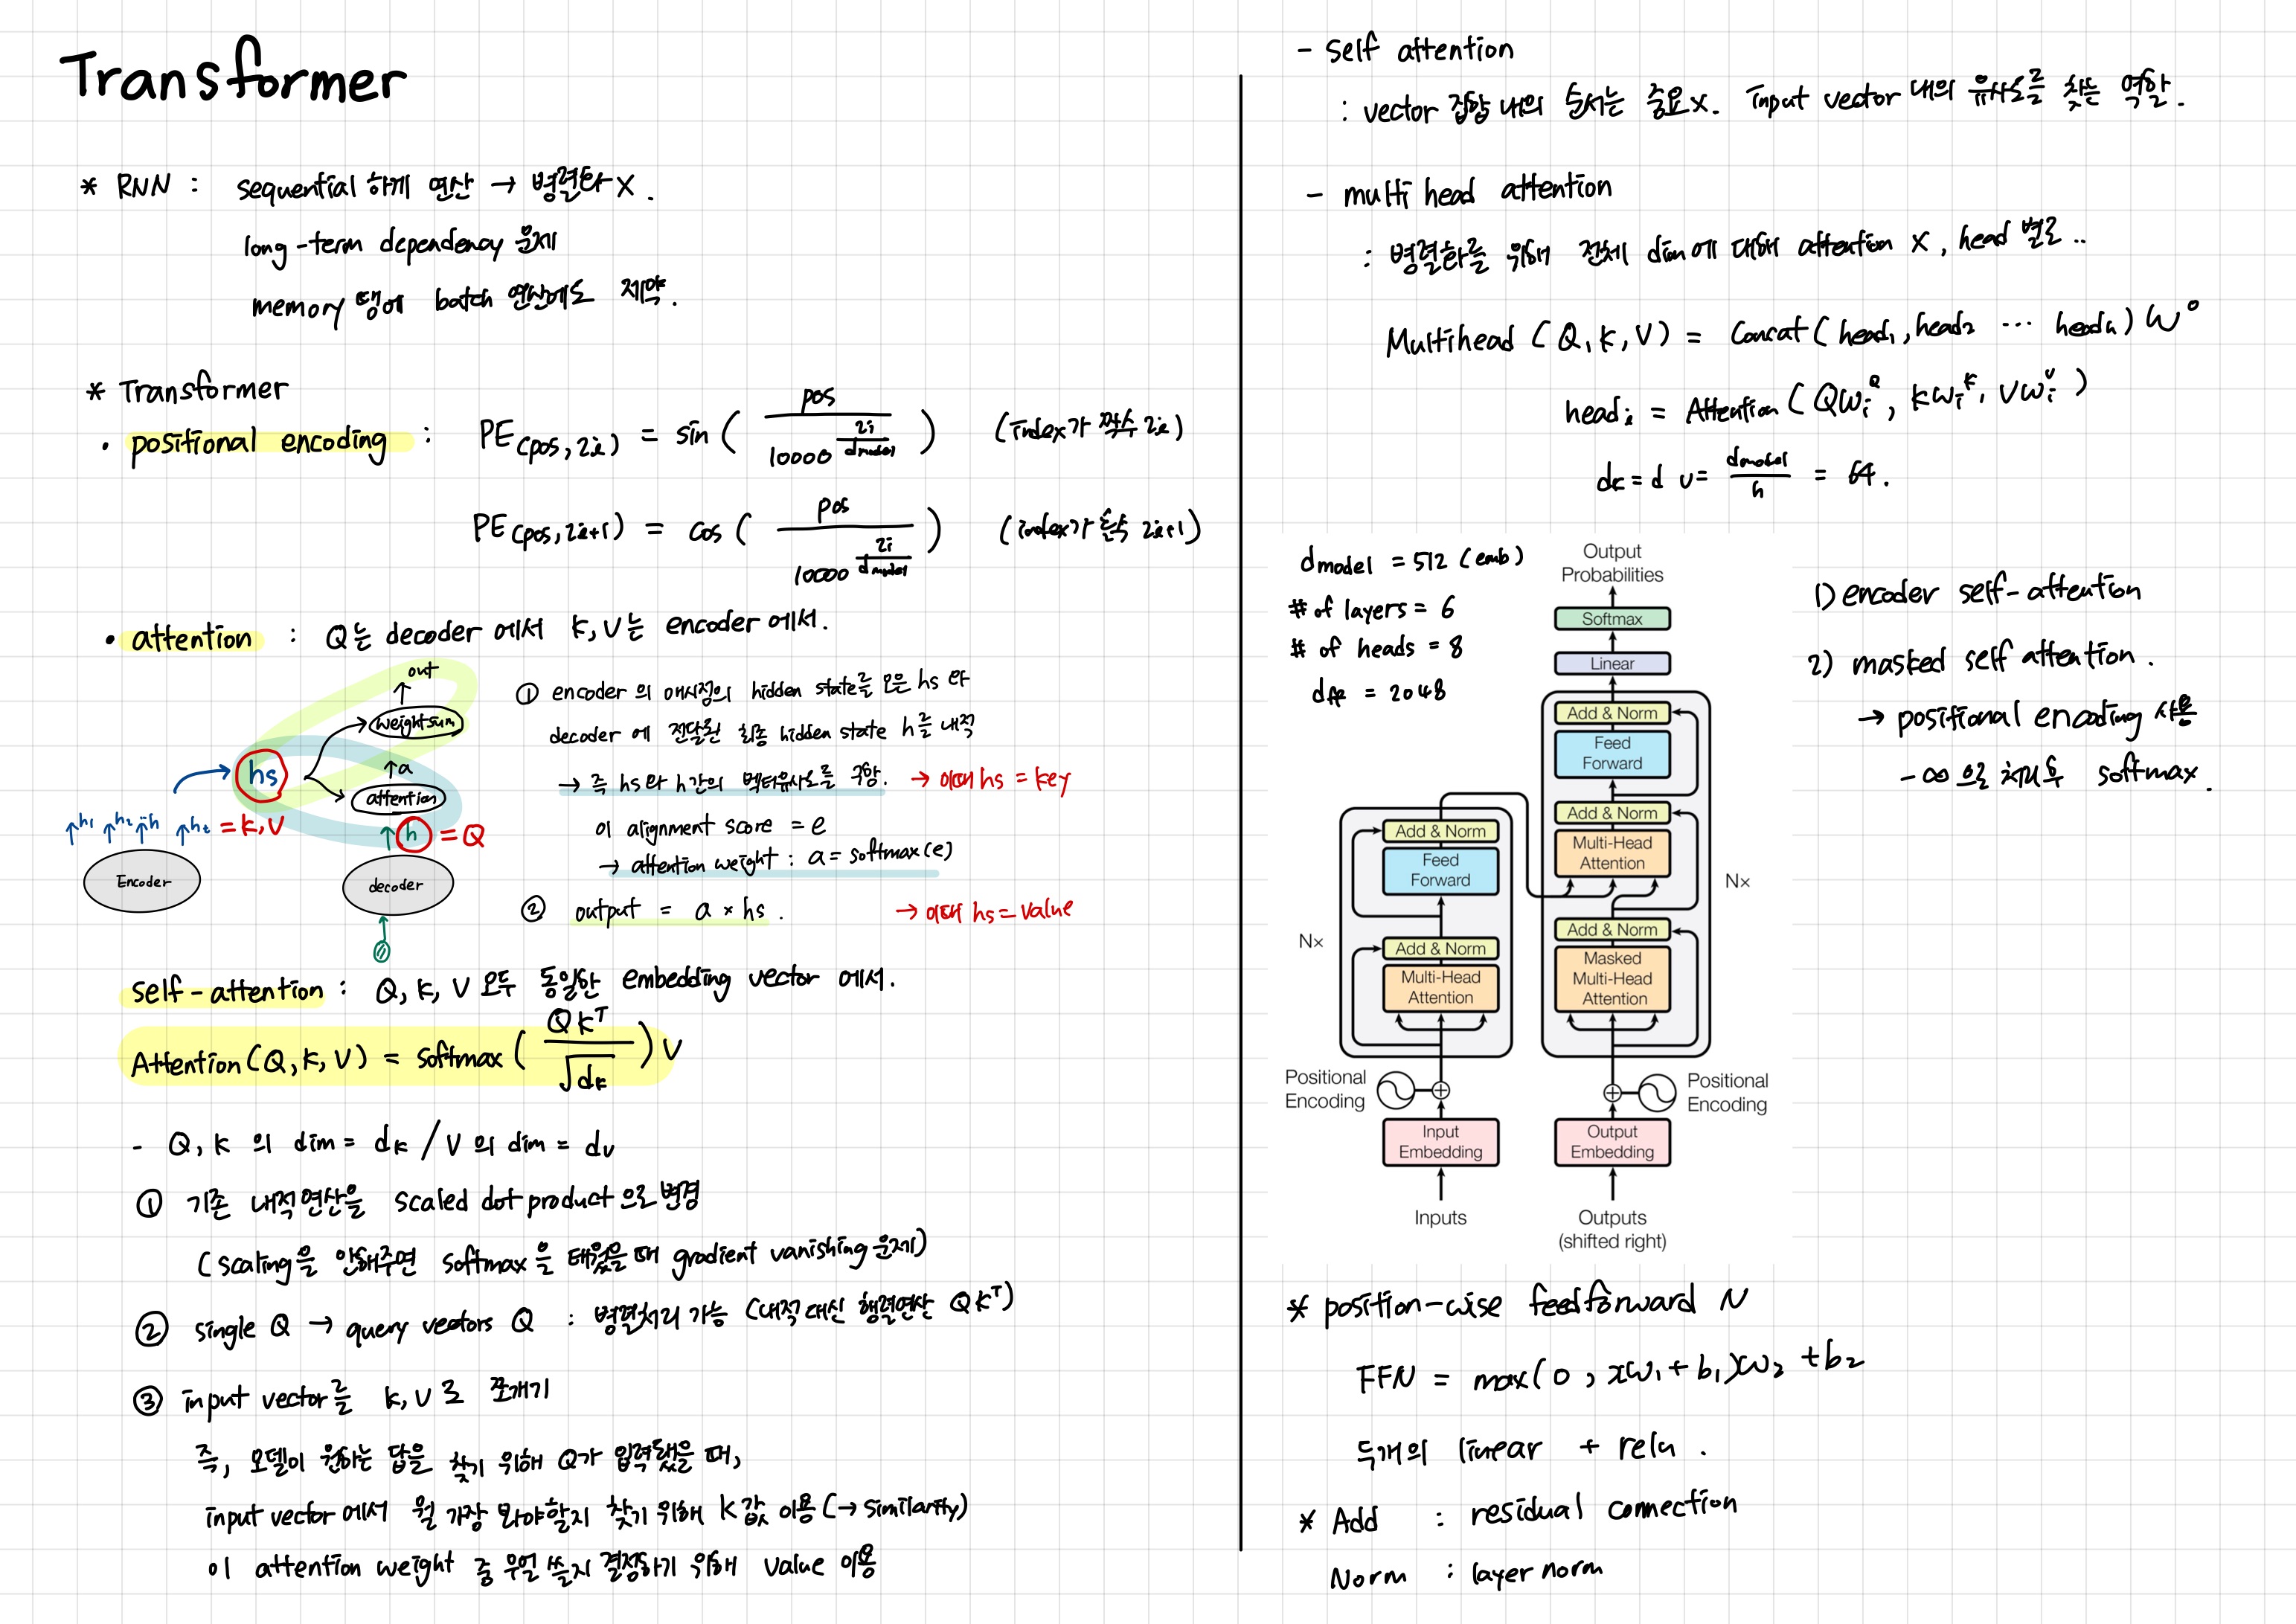 Transformer
* RNN : sequential 하게 연산 → 병렬화 X.
long-term dependency 문제
memory 땜에 batch 연산에도 제약.
* Transformer
• positional encoding : PE(pos, 2i) = sin ( pos / 10000^(2i/dmodel) ) (index가 짝수 2i)
PE(pos, 2i+1) = cos ( pos / 10000^(2i/dmodel) ) (index가 홀수 2i+1)
• attention : Q는 decoder 에서 K, V는 encoder 에서.
out
weight sum
hs
↑a
attention
↑h1 ↑h2 ↑h ↑ht = K, V
↑h = Q
Encoder
decoder
① encoder 의 매시점의 hidden state를 모은 hs 와
decoder 에 전달된 최종 hidden state h를 내적
→ 즉 hs와 h간의 벡터유사도를 구함. → 이때 hs = key
이 alignment score = e
→ attention weight : a = softmax(e)
② output = a × hs. → 이때 hs = value
self-attention : Q, K, V 모두 동일한 embedding vector 에서.
Attention(Q, K, V) = softmax ( QK^T / √dk ) V
- Q, K 의 dim = dk / V 의 dim = dv
① 기존 내적연산을 scaled dot product 으로 변경
( scaling을 안해주면 softmax을 태웠을 때 gradient vanishing 문제)
② single Q → query vectors Q : 병렬처리 가능 (내적 대신 행렬연산 QK^T)
③ input vector를 K, V로 쪼개기
즉, 모델이 원하는 답을 찾기 위해 Q가 입력됐을 때,
input vector 에서 뭘 가장 봐야할지 찾기 위해 K값 이용 (→ similarity)
이 attention weight 중 무얼 쓸지 결정하기 위해 value 이용
- self attention
: vector 집합 내의 순서는 중요x. input vector 내의 유사도를 찾는 역할.
- multi head attention
: 병렬화를 위해 전체 dim에 대해 attention X, head 별로 ..
Multihead (Q, K, V) = Concat ( head1, head2 ... headh ) W^o
headi = Attention ( QWi^Q, KWi^K, VWi^V )
dk = dv = dmodel / h = 64.
dmodel = 512 (emb)
# of layers = 6
# of heads = 8
dff = 2048
Output
Probabilities
Softmax
Linear
Add & Norm
Feed
Forward
Add & Norm
Multi-Head
Attention
Nx
Add & Norm
Masked
Multi-Head
Attention
Add & Norm
Feed
Forward
Nx
Add & Norm
Multi-Head
Attention
Positional
Encoding
Positional
Encoding
Input
Embedding
Output
Embedding
Inputs
Outputs
(shifted right)
1) encoder self-attention
2) masked self attention.
→ positional encoding 사용
-∞ 으로 처리후 softmax.
* position-wise feedforward N
FFN = max(0, xW1 + b1)xW2 + b2
두개의 linear + relu.
* Add : residual connection
Norm : layer norm